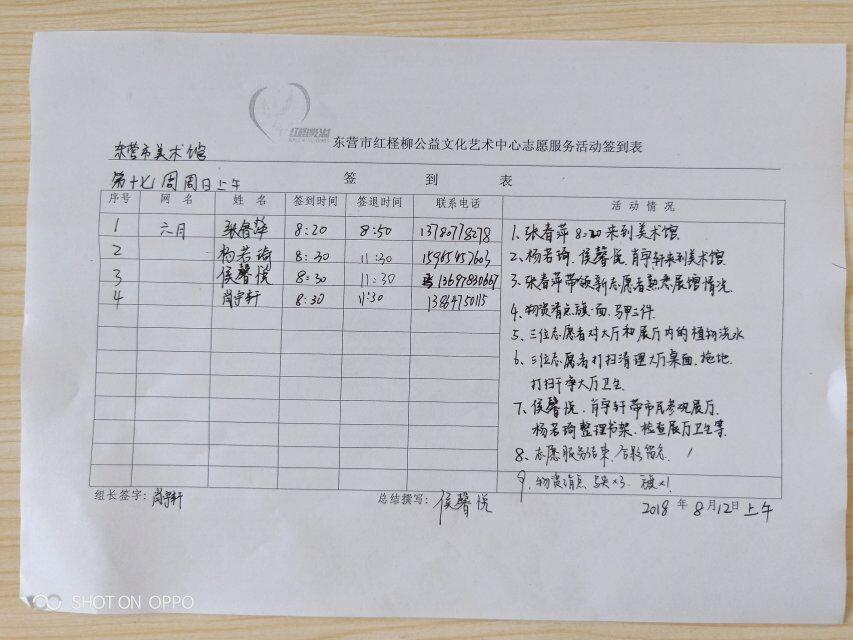 东营市红柽柳公益文化艺术中心志愿服务活动签到表
东营市美术馆
第十七周周日上午 签到表
序号 网名 姓名 签到时间 签退时间 联系电话 活动情况
1 六月 张春萍 8:20 8:50 13780778278
2 杨若琦 8:30 11:30 15965457603
3 侯馨悦 8:30 11:30 13697830667
4 肖宇轩 8:30 11:30 13864750115
1、张春萍 8:20来到美术馆
2、杨若琦、侯馨悦、肖宇轩来到美术馆
3、张春萍带领新志愿者熟悉展馆情况
4、物资清点旗一面、马甲三件
5、三位志愿者对大厅和展厅内的植物浇水
6、三位志愿者打扫清理大厅桌面、拖地
打扫干净大厅卫生
7、侯馨悦、肖宇轩带市民参观展厅、
杨若琦整理书架、检查展厅卫生等
8、志愿服务结束、合影留念
9、物资清点 ×3、旗×1
组长签字:肖宇轩 总结撰写:侯馨悦 2018年8月12日上午
SHOT ON OPPO